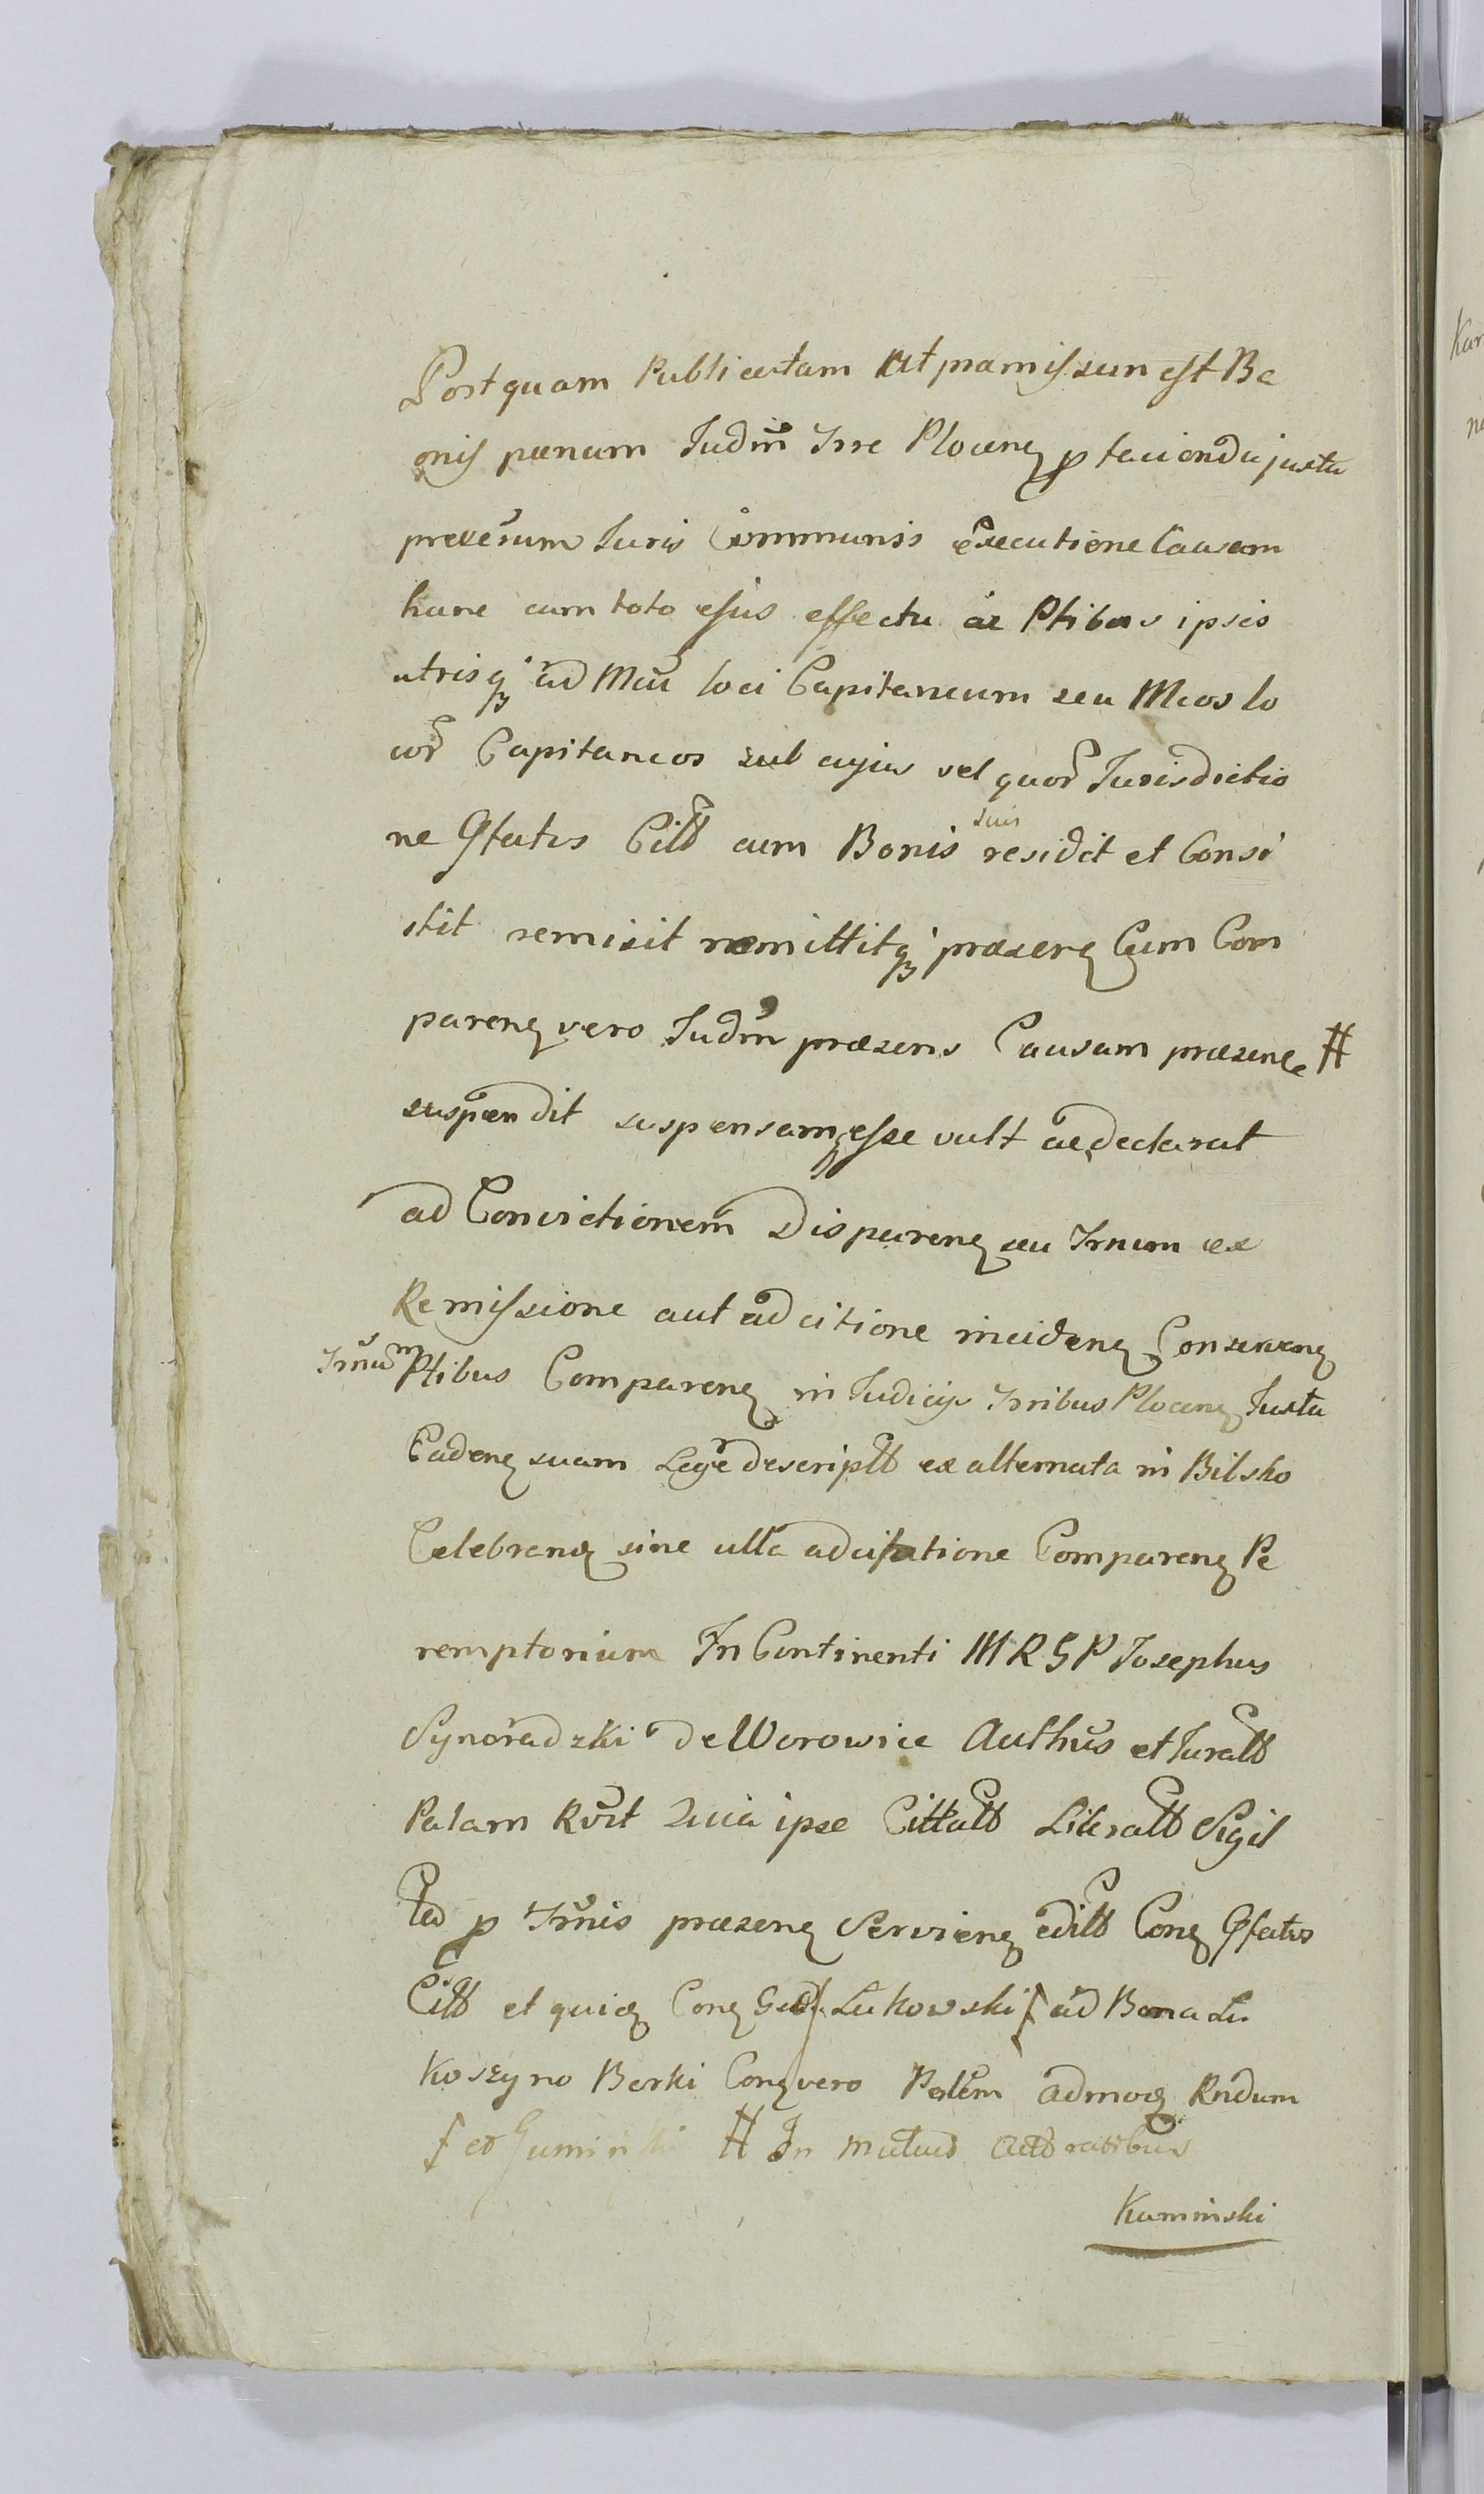 Postquam Publicatam ut præmissum est Ba
onis pænam Judm Trre Plocen p facienda juxta
præxerum Juris Communis executione Causam
hanc cum toto ejus effectu ac Ptibus ipsis
utrisq ad Mcu loci Capitaneum seu Mcos lo
cor Capitaneos sub cujus vel quor Jurisdictio
ne Gfatus Citt cum Bonis suis residit et Consi
stit remisit remittitq præsen Cum Com
paren vero Judm præsens Causam præsen #
suspendit suspensamq esse vult ac declarat
ad Convictionem Disparen seu Trnum ex
Remissione aut adcitione inciden Conserven
Trnum Ptibus Comparen in Judicijs Trribus Plocen Juxta
Caden suam Lege descriptt ex alternata in Bilsko
Celebran sine ulla adcitatione Comparen Pe
remptorium In Continenti M R G P Josephus
Synoradzki de Worowice Authus et Juratt
Palam Rvit Quia ipse Cittatt Literatt Sigil
latt p Trmis præsen Servien editt Con Gfatos
Citt et quid Con Gd Lukowski ∫ ad Bona Lu
koszyno Borki Con vero Palem admod Rndum
∫ et Guminski # In mutuis Actoratibus
Kaminski